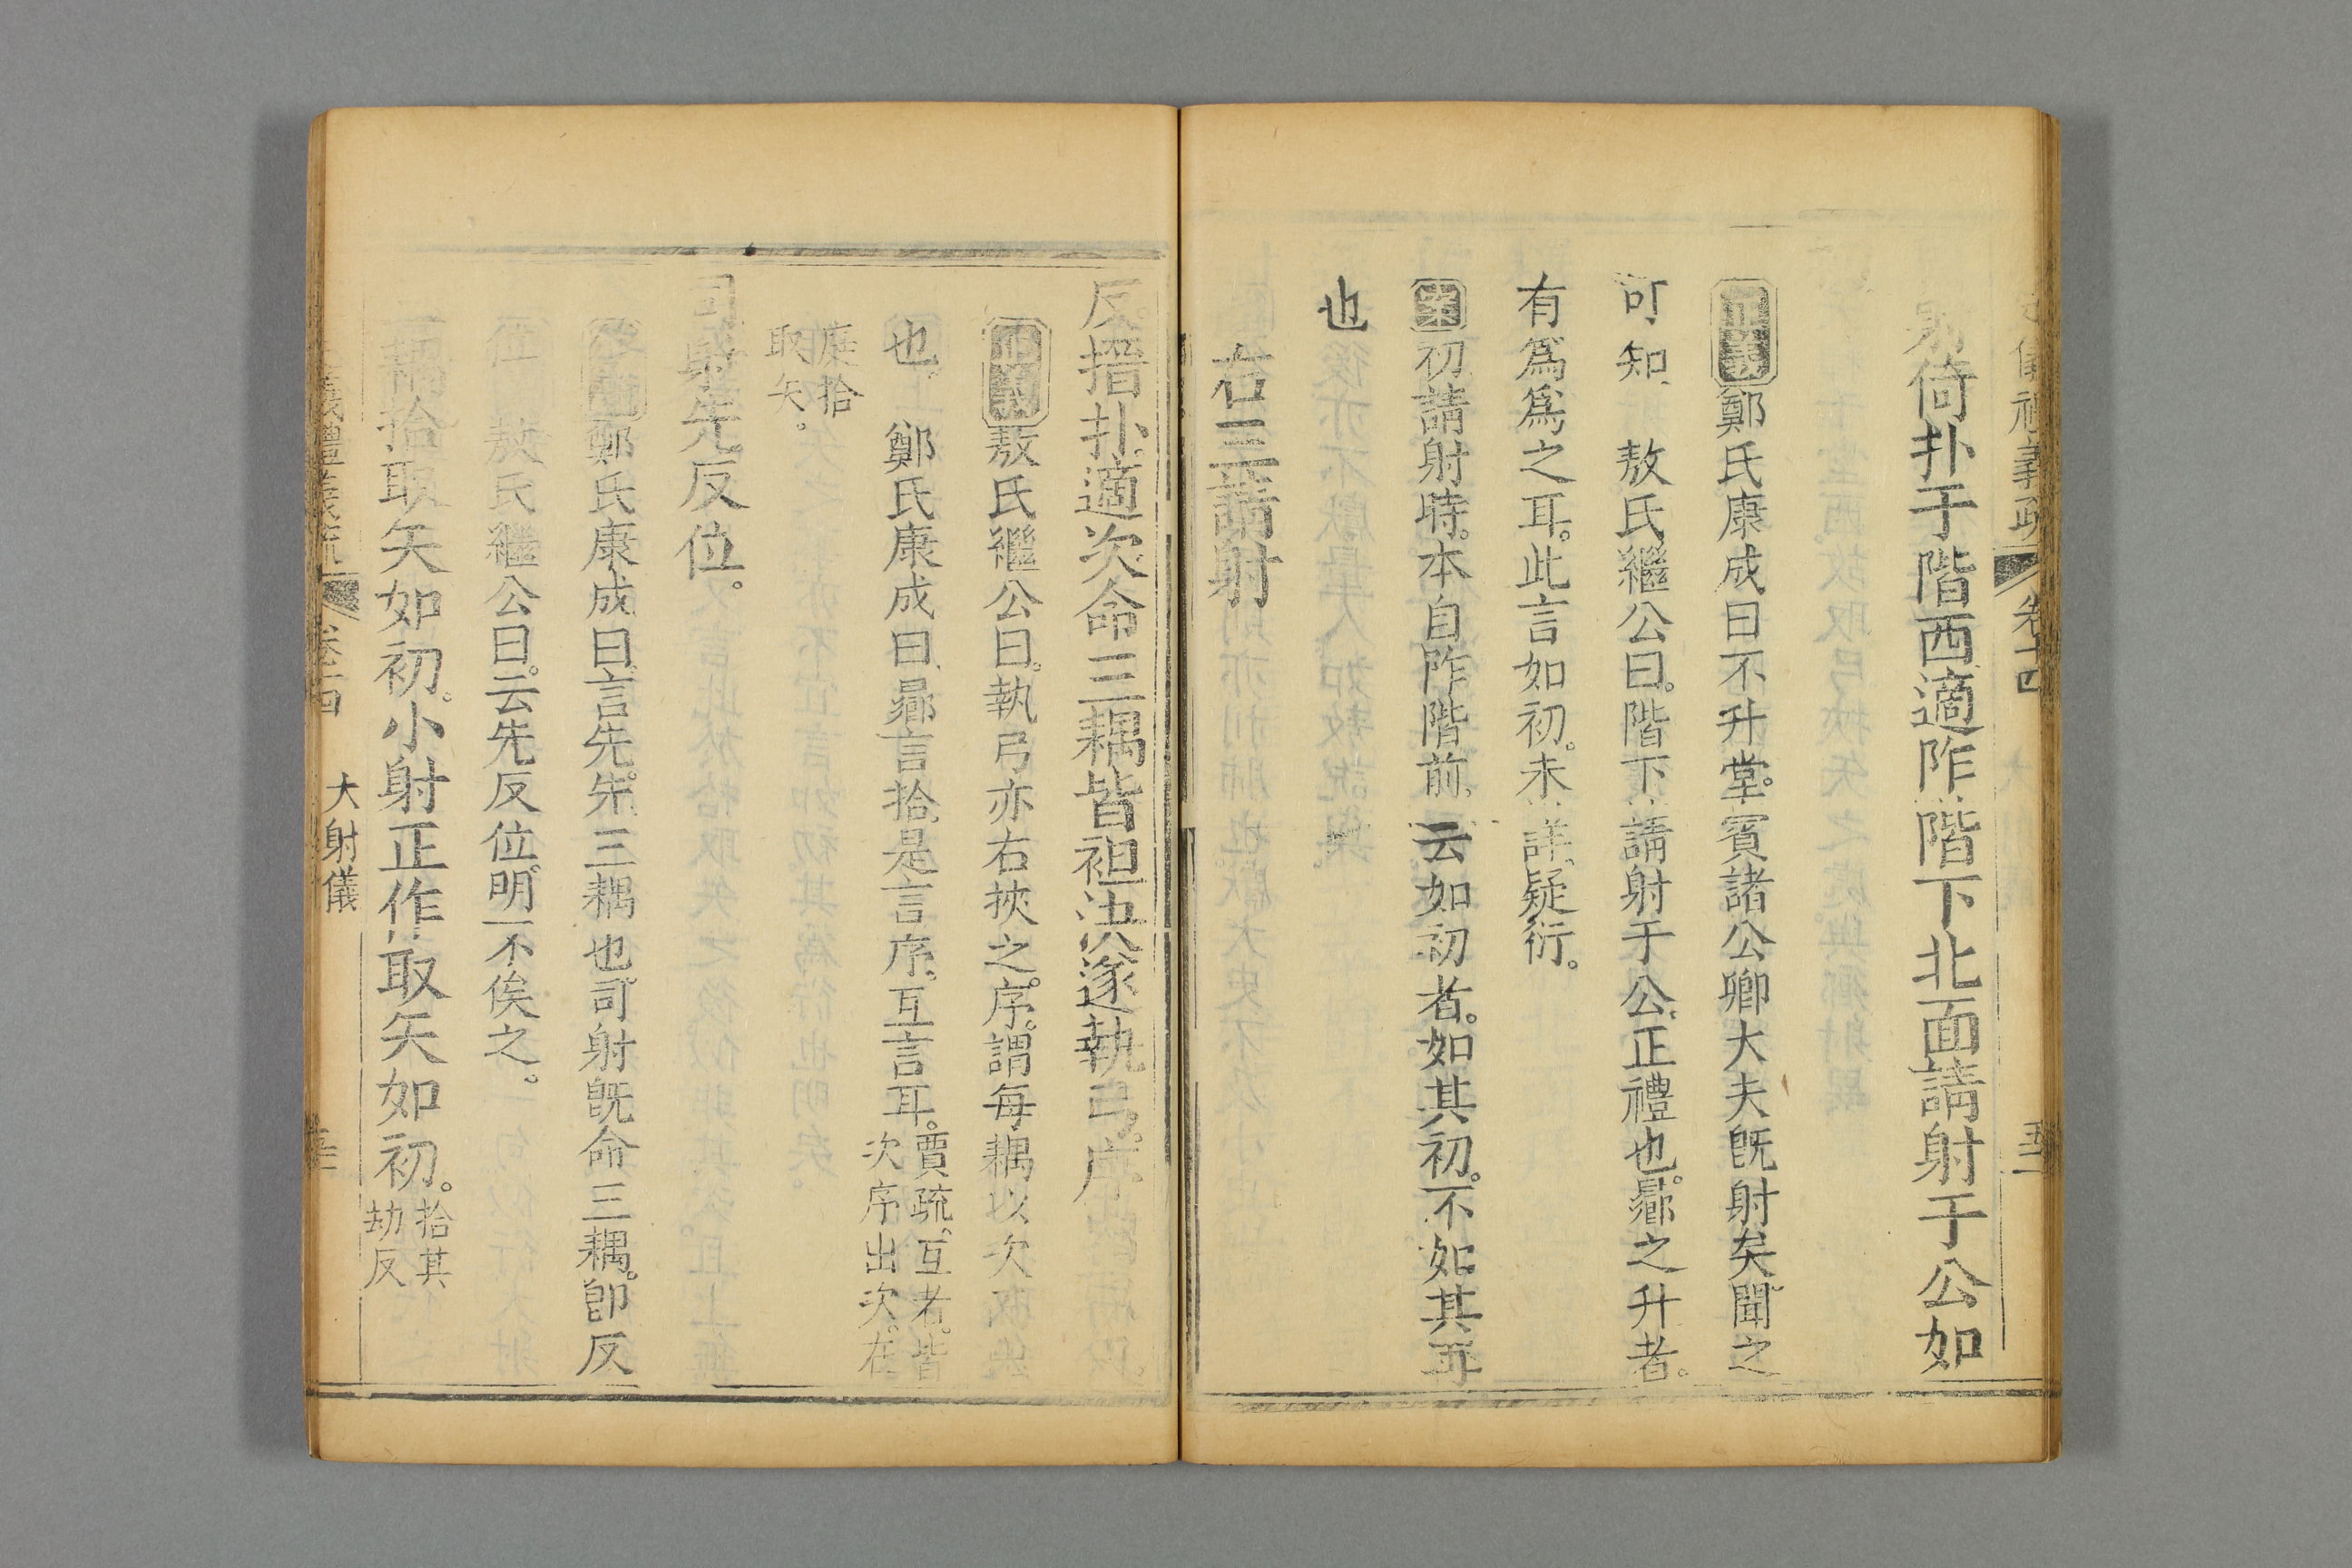 儀禮義疏 卷十四 五十一
射倚扑于階西適阼階下北面請射于公如
正義鄭氏康成曰不升堂賓諸公卿大夫旣射矣聞之
可知 敖氏繼公曰階下請射于公正禮也鄉之升者
有爲爲之耳此言如初未詳疑衍
案初請射時本自阼階前云如初者如其初不如其再
也
右三請射
反搢扑適次命三耦皆袒決遂執弓序
敖氏繼公曰執弓亦右挾之序謂每耦以次
也 鄭氏康成曰曏言拾是言序互言耳賈疏互者皆
次序出次在
庭拾
取矢
司射先反位
鄭氏康成曰言先先三耦也司射旣命三耦卽反
位 敖氏繼公曰云先反位明不俟之
三耦拾取矢如初小射正作取矢如初拾其
劫反
儀禮義疏 卷十四 大射儀